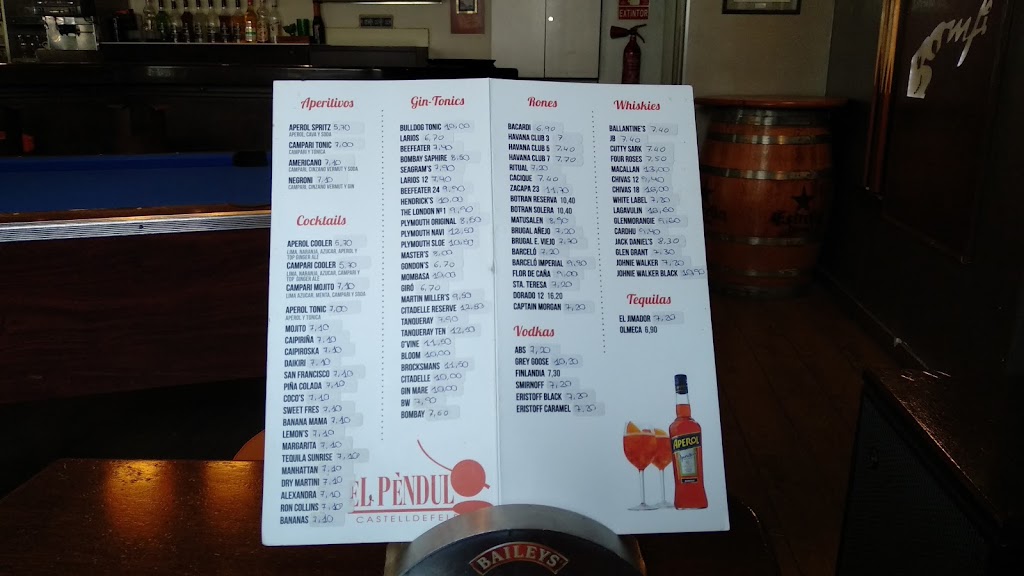 EXTINTOR
Aperitivos
APEROL SPRITZ 5,70
APEROL, CAVA Y SODA
CAMPARI TONIC 7,00
CAMPARI Y TONICA
AMERICANO 7,10
CAMPARI, CINZANO VERMUT Y SODA
NEGRONI 7,10
CAMPARI, CINZANO VERMUT Y GIN
Cocktails
APEROL COOLER 5,70
LIMA, NARANJA, AZUCAR, APEROL Y
TOP GINGER ALE
CAMPARI COOLER 5,70
LIMA, NARANJA, AZUCAR, CAMPARI Y
TOP GINGER ALE
CAMPARI MOJITO 7,10
LIMA AZUCAR, MENTA, CAMPARI Y SODA
APEROL TONIC 7,00
APEROL Y TONICA
MOJITO 7,10
CAIPIRIÑA 7,10
CAIPIROSKA 7,10
DAIKIRI 7,10
SAN FRANCISCO 7,10
PIÑA COLADA 7,10
COCO'S 7,10
SWEET FRES 7,10
BANANA MAMA 7,10
LEMON'S 7,10
MARGARITA 7,10
TEQUILA SUNRISE 7,10
MANHATTAN 7,10
DRY MARTINI 7,10
ALEXANDRA 7,10
RON COLLINS 7,10
BANANAS 7,10
Gin-Tonics
BULLDOG TONIC 10,00
LARIOS 6,70
BEEFEATER 7,40
BOMBAY SAPHIRE 8,50
SEAGRAM'S 7,90
LARIOS 12 7,40
BEEFEATER 24 9,50
HENDRICK'S 10,00
THE LONDON Nº1 9,90
PLYMOUTH ORIGINAL 8,60
PLYMOUTH NAVI 12,50
PLYMOUTH SLOE 10,50
MASTER'S 8,00
GONDON'S 6,70
MOMBASA 10,00
GIRÓ 6,70
MARTIN MILLER'S 9,50
CITADELLE RESERVE 12,50
TANQUERAY 7,50
TANQUERAY TEN 12,10
G'VINE 11,50
BLOOM 10,00
BROCKSMANS 11,50
CITADELLE 10,00
GIN MARE 10,00
BW 7,90
BOMBAY 7,60
EL PÈNDUL
CASTELLDEFELS
Rones
BACARDI 6,90
HAVANA CLUB 3 7
HAVANA CLUB 5 7,40
HAVANA CLUB 7 7,70
RITUAL 7,20
CACIQUE 7,40
ZACAPA 23 11,70
BOTRAN RESERVA 10,40
BOTRAN SOLERA 10,40
MATUSALEN 8,50
BRUGAL AÑEJO 7,20
BRUGAL E. VIEJO 7,70
BARCELÓ 7,20
BARCELÓ IMPERIAL 9,90
FLOR DE CAÑA 9,00
STA. TERESA 7,20
DORADO 12 16,20
CAPTAIN MORGAN 7,20
Vodkas
ABS 7,20
GREY GOOSE 10,30
FINLANDIA 7,30
SMIRNOFF 7,20
ERISTOFF BLACK 7,20
ERISTOFF CARAMEL 7,20
Whiskies
BALLANTINE'S 7,40
JB 7,40
CUTTY SARK 7,40
FOUR ROSES 7,50
MACALLAN 13,00
CHIVAS 12 9,40
CHIVAS 18 18,00
WHITE LABEL 7,30
LAGAVULIN
GLENMORANGIE
CARDHU 9,40
JACK DANIEL'S 8,30
GLEN GRANT 7,30
JOHNIE WALKER 7,20
JOHNIE WALKER BLACK 10,90
Tequilas
EL JIMADOR 7,20
OLMECA 6,90
APEROL
BAILEYS